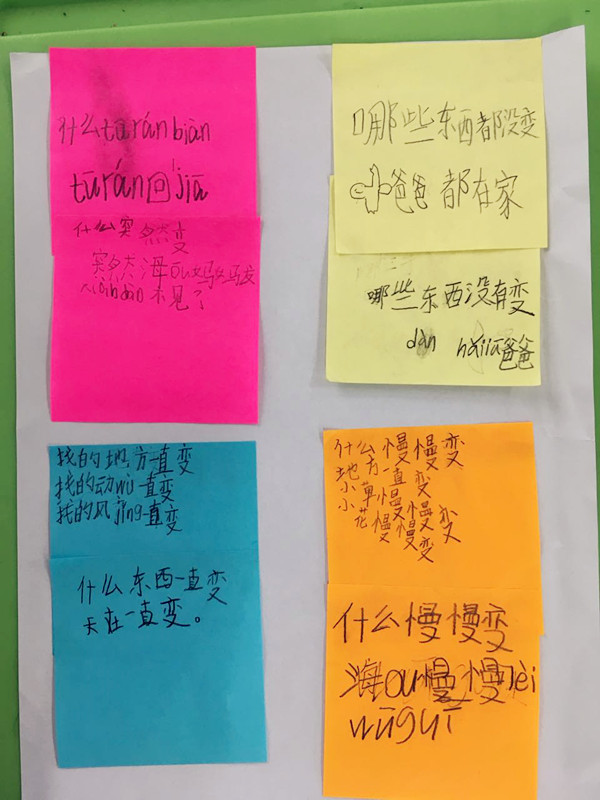 什么tūrán biàn
tūrán回jiā
什么突然变
突然海ou
不见了
哪些东西都没变
爸爸都在家
哪些东西没有变
dàn
爸爸
找的地方一直变
找的动wù一直变
找的风jǐng一直变
什么东西一直变
一直变。
什么慢慢变
地方一直变
小草慢慢变
小花慢慢变
什么慢慢变
海ou慢慢
wūguī